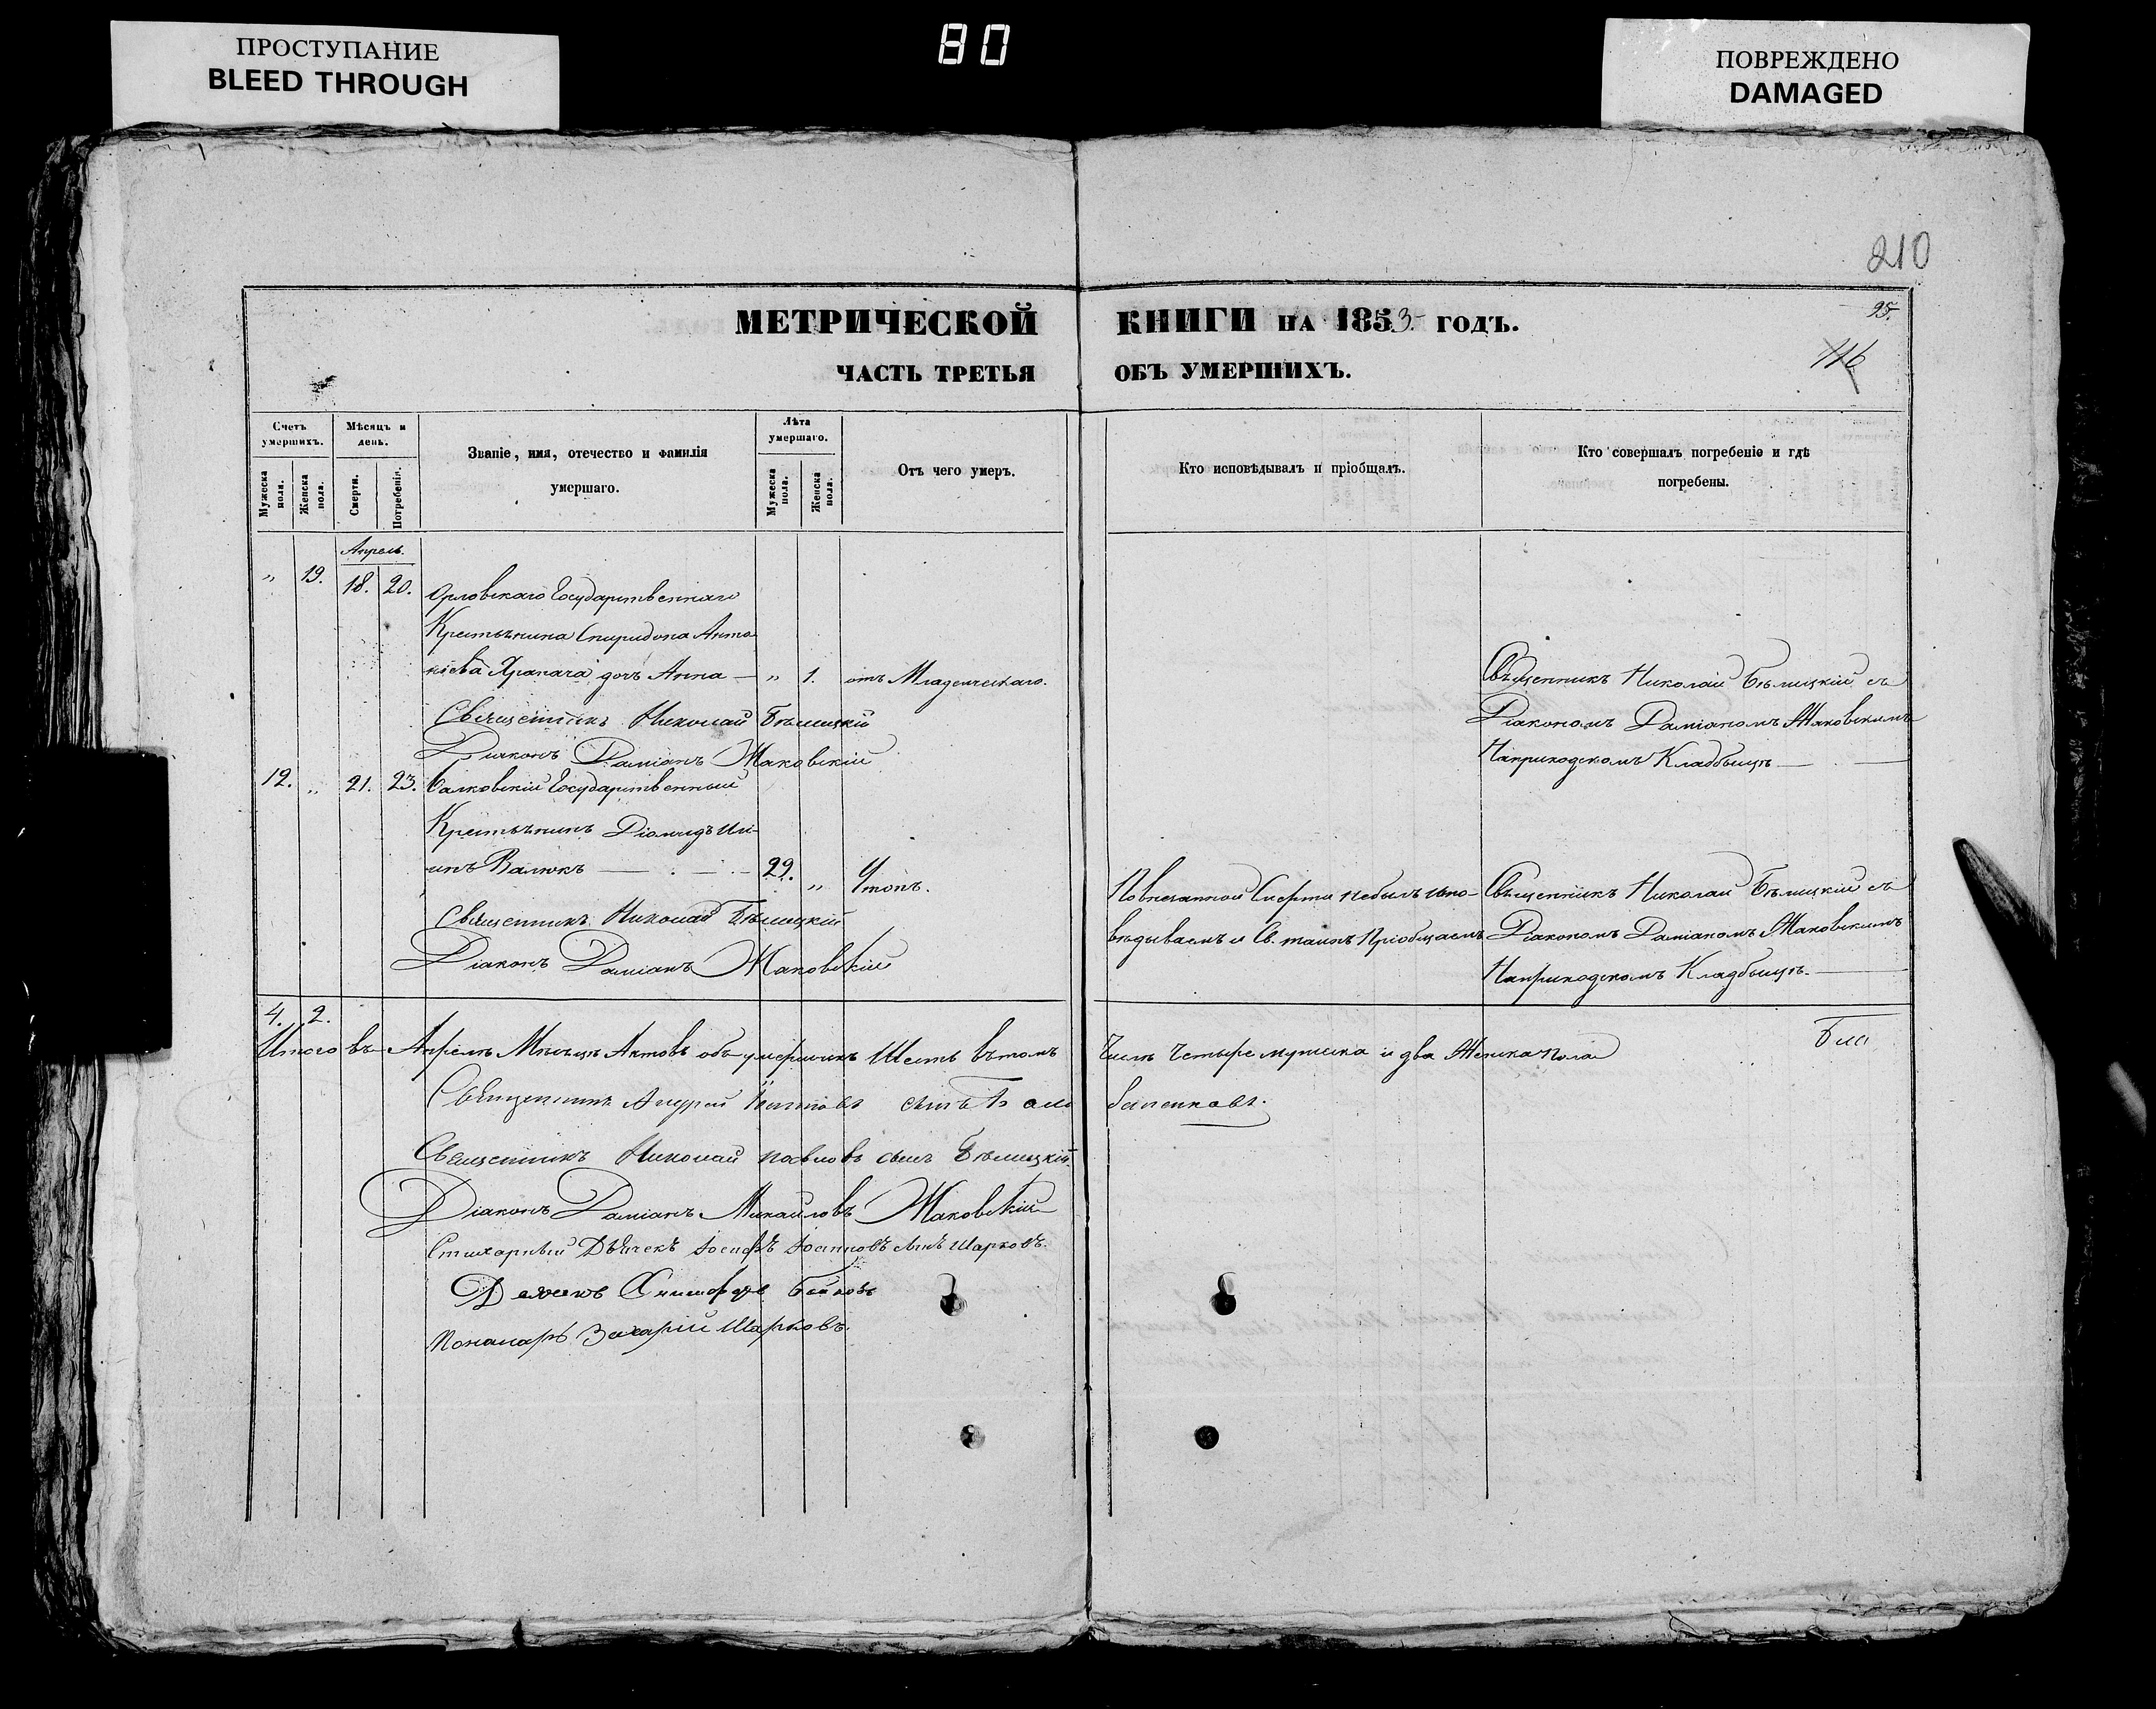 ПРОСТУПАНИЕ
BLEED THROUGH
80
ПОВРЕЖДЕНО
DAMAGED
210
95.
116
МЕТРИЧЕСКОЙ КНИГИ НА 1853 ГОДЪ.
ЧАСТЬ ТРЕТЬЯ ОБЪ УМЕРШИХЪ.
Счетъ умершихъ.
Мужеска пола.
Женска пола.
Мѣсяцъ и день.
Смерти.
Погребенія.
Званіе, имя, отечество и фамилія
умершаго.
Лѣта умершаго.
Мужеска пола.
Женска пола.
Отъ чего умеръ.
Кто исповѣдывалъ и пріобщалъ.
Кто совершалъ погребеніе и гдѣ
погребены.
Апрель.
„ 19. 18. 20. Орловскаго Государственнаго
Крестьянина Спиридона Анто-
ніева Храпача дочь Анна — „ 1. отъ Младенческаго.
Священникъ Николай Бѣлицкій съ
Діакономъ Даміаномъ Жаковскимъ
На приходскомъ Кладбищѣ —
Священникъ Николай Бѣлицкій
Діаконъ Даміанъ Жаковскій
12. „ 21. 23. Салковскій Государственный
Крестьянинъ Діомидъ
Валюкъ — 29. „ Утопъ.
Повнезапной Смерти небылъ испо-
вѣдываемъ и Св. таинъ Пріобщаемъ
Священникъ Николай Бѣлицкій съ
Діакономъ Даміаномъ Жаковскимъ
На приходскомъ Кладбищѣ. —
Священникъ Николай Бѣлицкій
Діаконъ Даміанъ Жаковскій
4. 2.
Итого въ Апрелѣ Мѣсяцѣ Актовъ объ умершихъ Шесть въ томъ числѣ Четыре мужеска и два Женска пола
Священникъ Андрей сынъ
Священникъ Николай Павловъ сынъ Бѣлицкій.
Діаконъ Даміанъ Михайловъ Жаковскій
Стихарный Дьячекъ Іосифъ Іоанновъ сынъ Шарковъ.
Дьячекъ
Пономарь Захарій Шарковъ.